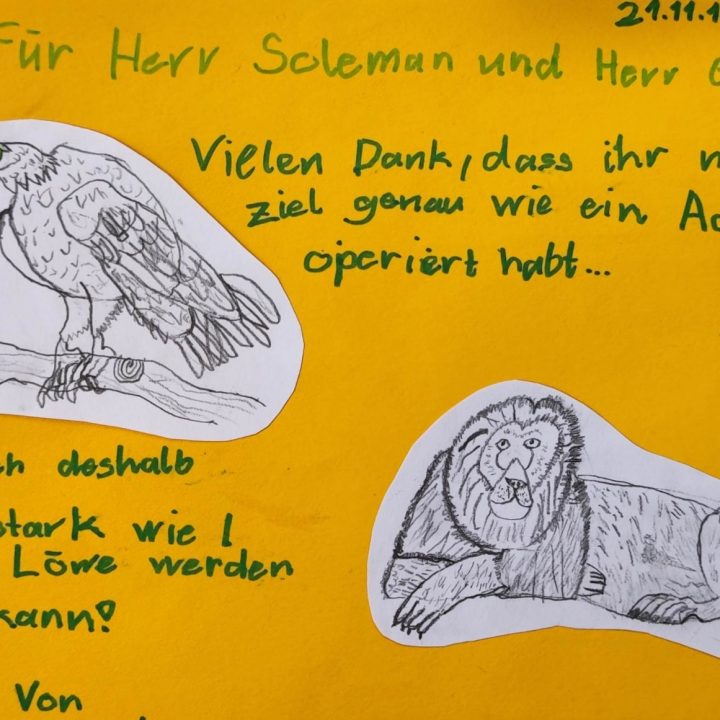 21.11.1
Für Herr Soleman und Herr
Vielen Dank, dass ihr m
ziel genau wie ein Ad
operiert habt...
ch deshalb
stark wie 1
Löwe werden
kann!
Von